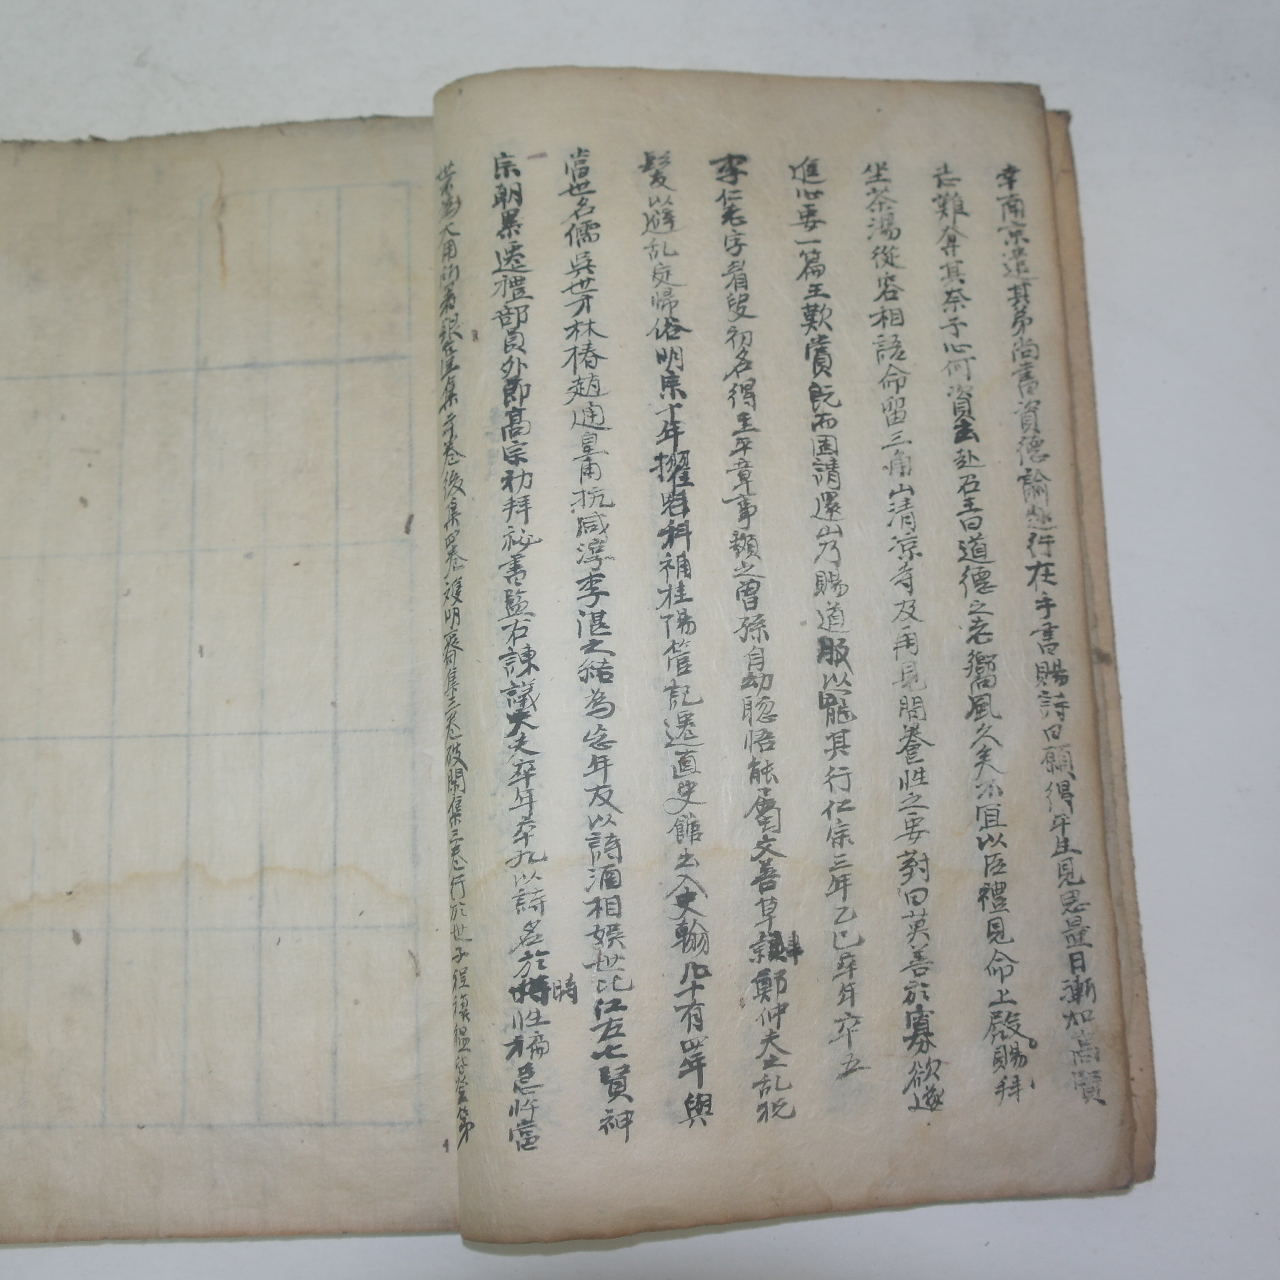 幸南京遣其弟尚書資德諭赴行在手書賜詩曰願得平生見思量日漸加高賢
志難奪其奈予心何資玄赴召王曰道德之老嚮風久矣不宜以臣禮見命上殿賜拜
坐茶湯從容相語命留三角山清凉寺及再見問養性之要對曰莫善於寡欲遂
進心要一篇王歎賞既而固請還山乃賜道服以寵其行仁宗三年乙巳卒年六十五
李仁老字眉叟初名得玉平章事䫨之曾孫自幼聰悟能屬文善草隸鄭仲夫之乱祝
髮以避乱定歸俗明宗十年擢魁科補桂陽管記遷直史館出入史翰凡十有四年與
當世名儒吳世才林椿趙通皇甫抗咸淳李湛之結為忘年友以詩酒相娛世比江左七賢神
宗朝累遷禮部員外郎高宗初拜祕書監右諫議大夫卒年六十九以詩名於時性褊急忤當
世不為大用所著銀坮集二十卷後集四卷雙明齋集三卷破閑集三卷行於世子程穰韞皆登第